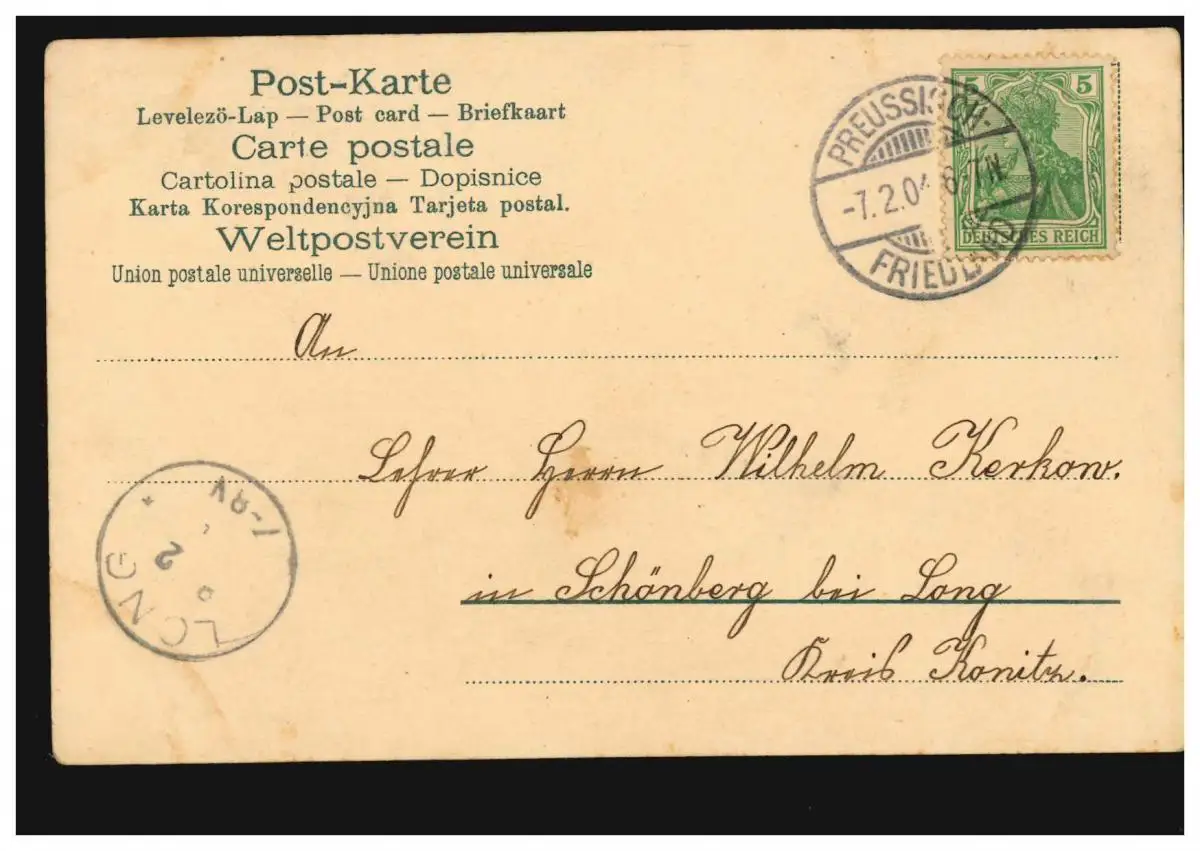 Post-Karte
Levelezö-Lap — Post card — Briefkaart
Carte postale
Cartolina postale — Dopisnice
Karta Korespondencyjna Tarjeta postal.
Weltpostverein
Union postale universelle — Unione postale universale
5 5
DEUTSCHES REICH
PREUSSISCH-
-7.2.04 6-7N.
FRIEDLAND
An
Lehrer Herrn Wilhelm Kerkow.
in Schönberg bei Long
Kreis Konitz.
LONG
2